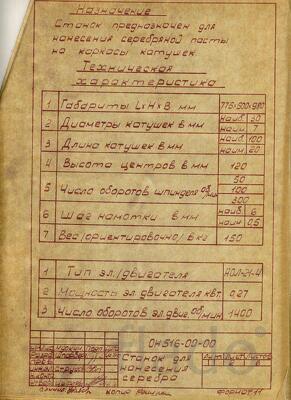 Назначение
Станок предназначен для
нанесения серебряной пасты
на каркасы катушек.
Техническая
характеристика
1 Габариты LxHxB мм 775×500×980
2 Диаметры катушек в мм наиб. 30
наим. 7
3 Длина катушек в мм наиб. 100
наим. 20
4 Высота центров в мм 120
5 Число оборотов шпинделя об/мин 50
100
300
6 Шаг намотки в мм наиб. 6
наим. 0,5
7 Вес /ориентировочно/ в кг 150
1 Тип эл./двигателя АОЛ-21-4
2 Мощность эл двигателя квт. 0,27
3 Число оборотов эл.двиг. об/мин 1400
ОН516-00-00
Станок для
нанесения
серебра
Формат 11